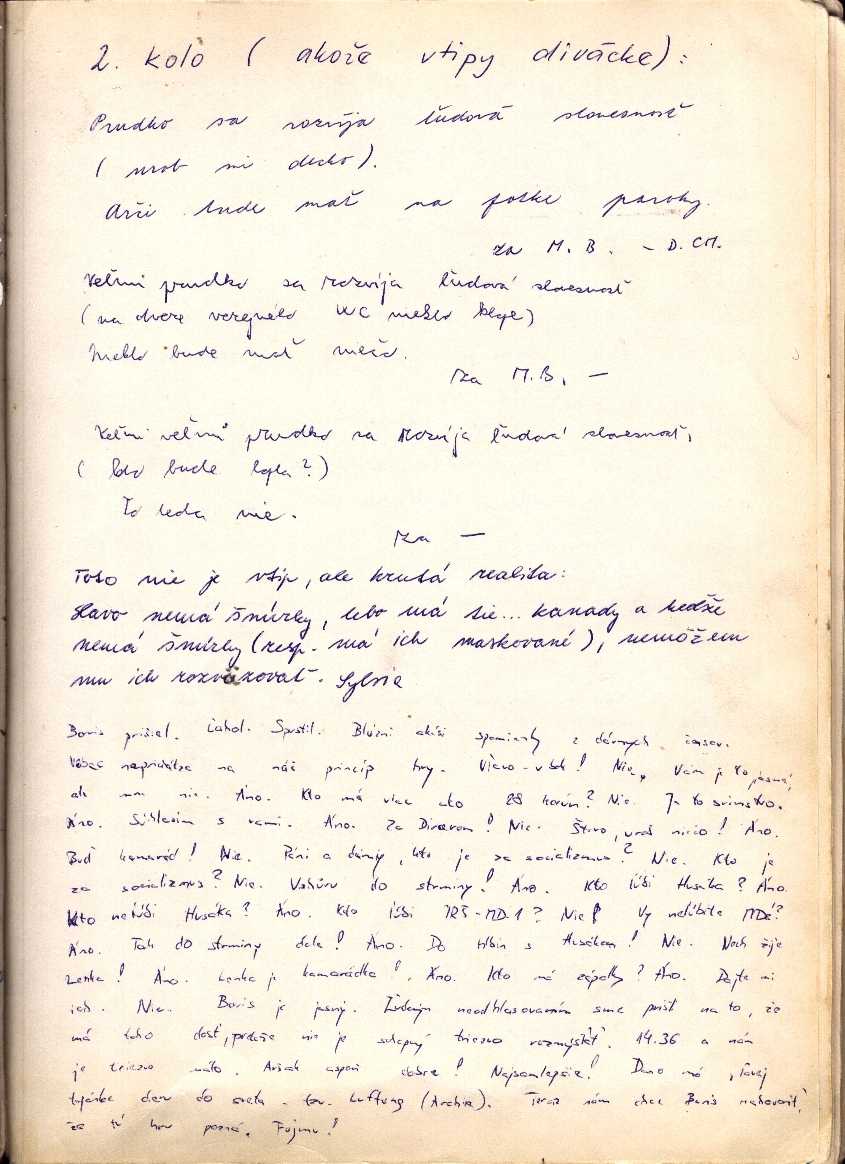 2. kolo ( akože vtipy divácke) :
Prudko sa rozvíja ľudová slovesnosť
( urob mi decko).
Arči bude mať na fotke parohy.
za M. B. – D. CM.
Veľmi prudko sa rozvíja ľudová slovesnosť
(na dvere verejného WC niekto)
Niekto bude mať niečo.
za M.B. –
Veľmi veľmi prudko sa rozvíja ľudová slovesnosť.
( kdo bude ?)
To teda nie.
za –
Toto nie je vtip, ale krutá realita:
Slavo nemá šnúrky, lebo má tie... kanady a keďže
nemá šnúrky (resp. má ich maskované), nemôžem
mu ich rozväzovať. Sylvia
Boris prišiel. Ľahol. Spustil. Blúzni akési spomienky z dávnych časov.
Vôbec neprichádza na náš princíp hry. ! Nie. Vám je to jasné,
ale mne nie. Áno. Kto má viac ako 28 korún? Nie. Je to svinstvo.
Áno. Súhlasím s vami. Áno. Za ! Nie. Števo, vraš niečo! Áno.
Buď kamarád! Nie. Páni a dámy, kto je za socializmus? Nie. Kto je
za socializmus? Nie. Vzhůru do strminy! Áno. Kto ľúbi Husáka? Áno.
Kto neľúbi Husáka? Áno. Kto ľúbi IRŠ-MD-1? Nie! Vy neľúbite MDé?
Áno. Tak do strminy ! Áno. Do hlbín s Husákom! Nie. Nech žije
Lenka! Áno. Lenka je kamarádka! Áno. Kto má zápalky? Áno. Dajte mi
ich. Nie. Boris je jasný. Ľudovým neodhlasovaním sme prišli na to, že
má toho dosť, pretože nie je schopný triezvo rozmýšľať. 14.36 a nám
je triezvo málo. Avšak aspoň dobre! Najsamlepšie! Dano má
deru do sveta - tzv. Luftung (Archív). Teraz nám chce Boris nahovoriť,
že tú hru pozná. Fujmu!